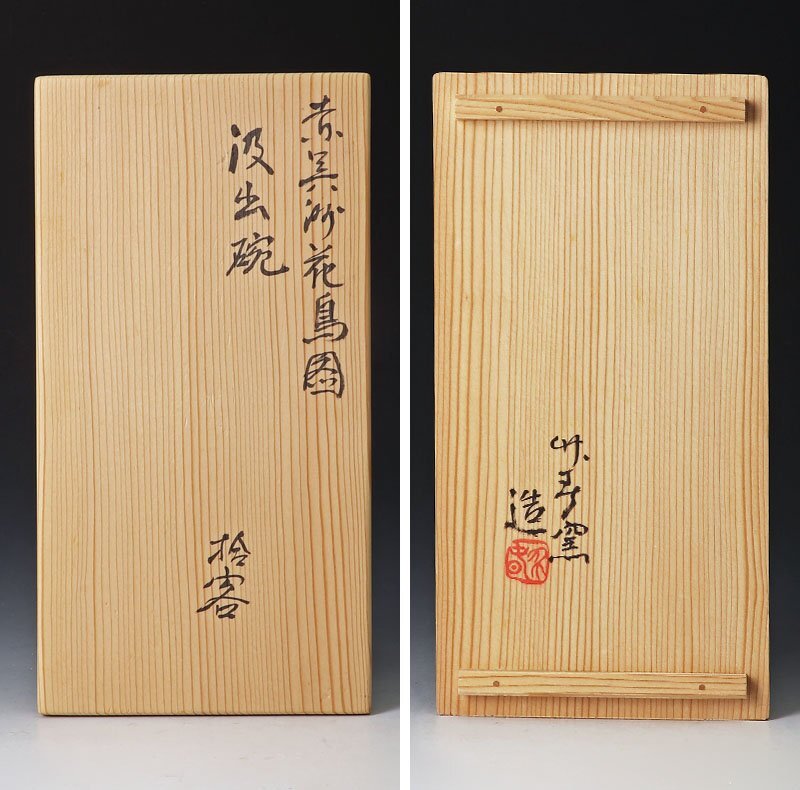 赤呉洲花鳥図
汲出碗
拾客
竹寿窯
造